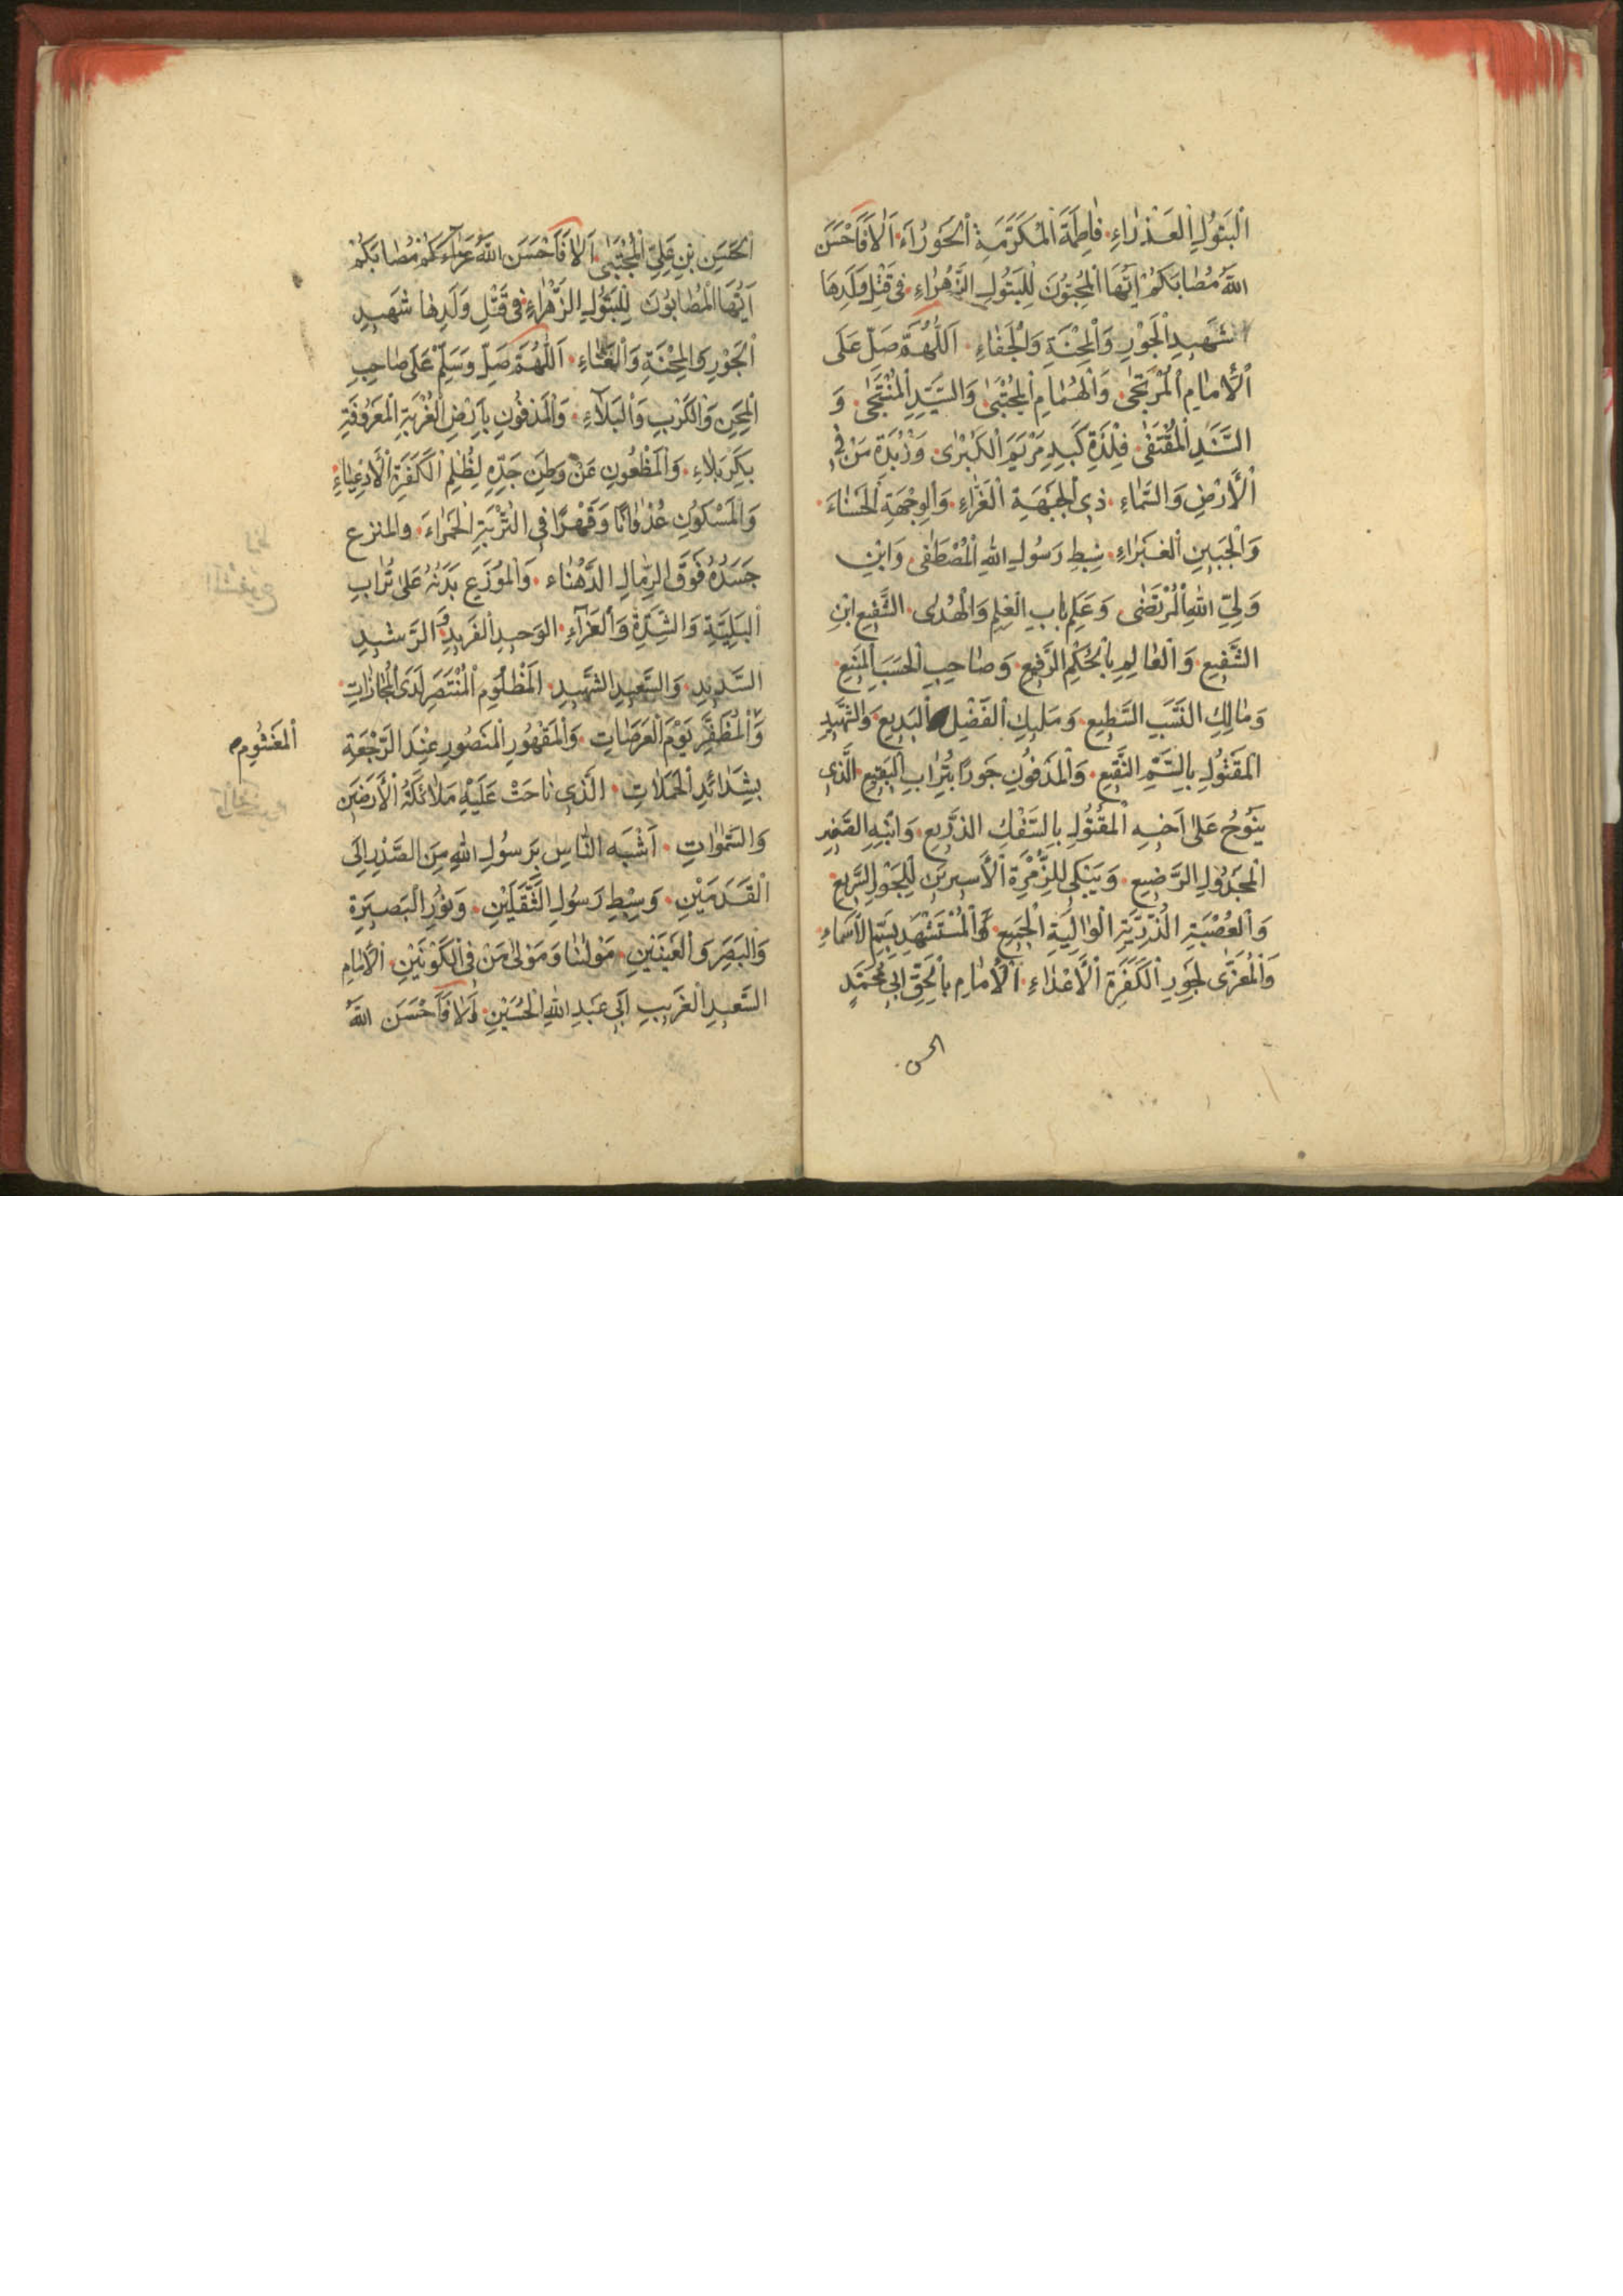 اَلْبَتُولِ الْعَذْرٰاءِ. فٰاطِمَةَ الْمُكَرَّمَةِ الْحَوْرٰاءَ. اَلاٰ فَاَحْسَنَ
اللّٰهُ مُصٰابَكُمْ اَيُّهَا الْمُحِبُّونَ لِلْبَتُولِ الزَّهْرٰاءِ. فى قَتْلِ وَلَدِهَا
شَهِيدِ الْجَوْرِ وَالْمِحْنَةِ وَالْجَفٰاءِ. اَللّٰهُمَّ صَلِّ عَلَى
الْاِمٰامِ الْمُرْتَجٰى. وَالْهُمٰامِ الْمُجْتَبٰى. وَالسَّيِّدِ الْمُنْتَجٰى. وَ
السَّنَدِ الْمُقْتَفٰى. فِلْذَةِ كَبِدِ مَرْيَمَ الْكُبْرٰى. وَزُبْدَةِ مَنْ فِى
الْأَرْضِ وَالسَّمٰاءِ. ذِى الْجَبْهَةِ الْغَرّٰاءِ. وَالْوِجْهَةِ الْحَسْنٰاءَ.
وَالْجَبِينِ الْغَبْرٰاءِ. سِبْطِ رَسُولِ اللّٰهِ الْمُصْطَفٰى. وَابْنِ
وَلِىِّ اللّٰهِ الْمُرْتَضٰى. وَعَلَمِ بٰابِ الْعِلْمِ وَالْهُدٰى. الشَّفِيعِ ابْنِ
الشَّفِيعِ. وَالْعٰالِمِ بِالْحُكْمِ الرَّفِيعِ. وَصٰاحِبِ الْحَسَبِ الْمَنِيعِ.
وَمٰالِكِ النَّسَبِ السَّطِيعِ. وَمَلِيكِ الْفَضْلِ الْبَدِيعِ. وَالشَّهِيدِ
الْمَقْتُولِ بِالسَّمِّ النَّقِيعِ. وَالْمَدْفُونِ جَوْرًا بِتُرٰابِ الْبَقِيعِ. الَّذِى
يَنُوحُ عَلىٰ اَخِيهِ الْمَقْتُولِ بِالسَّفْكِ الذَّرِيعِ. وَابْنِهِ الصَّغِيرِ
الْمَجْدُولِ الرَّضِيعِ. وَيَبْكِى لِلزُّمْرَةِ الْأَسِيرِينَ لِلْجَوْلِ السَّرِيعِ.
وَالْعُصْبَةِ الذُّرِّيَّةِ الْوٰالِيَةِ الْجَمِيعِ. وَالْمُسْتَشْهَدِ بِسَمِّ الْأَسْمٰاءِ.
وَالْمُعَزّٰى لِجَوْرِ الْكَفَرَةِ الْأَعْدٰاءِ. اَلْاِمٰامِ بِالْحَقِّ اَبِى مُحَمَّدٍ
الحسن
الْحَسَنِ بْنِ عَلِىٍّ الْمُجْتَبٰى. اَلاٰ فَاَحْسَنَ اللّٰهُ عَزٰاءَكُمْ مُصٰابَكُمْ
اَيُّهَا الْمُصٰابُونَ لِلْبَتُولِ الزَّهْرٰاءِ. فى قَتْلِ وَلَدِهٰا شَهِيدِ
الْجَوْرِ وَالْمِحْنَةِ وَالْعَنٰاءِ. اَللّٰهُمَّ صَلِّ وَسَلِّمْ عَلىٰ صٰاحِبِ
الْمِحَنِ وَالْكَرْبِ وَالْبَلٰٓاءِ. وَالْمَدْفُونِ بِأَرْضِ الْغُرْبَةِ الْمَعْرُوفَةِ
بِكَرْبَلاٰءِ. وَالْمَظْعُونِ عَنْ وَطَنِ جَدِّهِ لِظُلْمِ الْكَفَرَةِ الْأَدْعِيٰاءِ.
وَالْمَسْكُونِ عُدْوٰانًا وَقَهْرًا فِى التُّرْبَةِ الْحَمْرٰاءَ. والمنزع
جَسَدُهُ فَوْقَ الرِّمٰالِ الدَّهْنٰاء. وَالْمُوَزَّعِ بَدَنُهُ عَلىٰ تُرٰابِ
الْبَلِيَّةِ وَالشِّدَّةِ وَالْعَزٰٓاءِ. الوَحِيدِ الْفَرِيدِ. وَالرَّشِيدِ
السَّدِيدِ. وَالسَّعِيدِ الشَّهِيدِ. الْمَظْلُومِ الْمُنْتَصَرِ لَدَى الْمُجٰازٰاتِ.
وَالْمُظَفَّرِ يَوْمَ الْعَرَصٰاتِ. وَالْمَقْهُورِ الْمَنْصُورِ عِنْدَ الرَّجْعَةِ
الْمَغْشُومِ
بِشَدٰائِدِ الْحَمَلاٰتِ. الَّذِى نٰاحَتْ عَلَيْهِ مَلاٰئِكَةُ الْأَرَضِينَ
وَالسَّمٰوٰاتِ. اَشْبَهِ النّٰاسِ بِرَسُولِ اللّٰهِ مِنَ الصَّدْرِ اِلَى
الْقَدَمَيْنِ. وَسِبْطِ رَسُولِ الثَّقَلَيْنِ. وَنُورِ الْبَصِيرَةِ
وَالْبَصَرِ وَالْعَيْنَيْنِ. مَوْلٰانٰا وَمَوْلىٰ مَنْ فِى الْكَوْنَيْنِ. الْاِمٰامِ
السَّعِيدِ الْغَرِيبِ اَبِى عَبْدِ اللّٰهِ الْحُسَيْنِ. اَلاٰ فَاَحْسَنَ اللّٰهُ